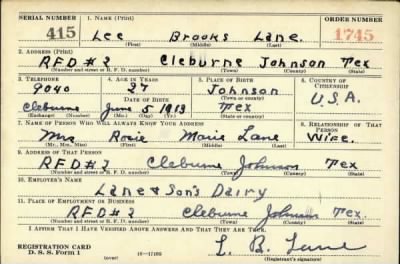 SERIAL NUMBER 1. NAME (Print) ORDER NUMBER
415 Lee Brooks Lane. 1745
(First) (Middle) (Last)
2. ADDRESS (Print)
RFD#2 Cleburne Johnson Tex
(Number and street or R. F. D. number) (Town) (County) (State)
3. TELEPHONE 4. AGE IN YEARS 5. PLACE OF BIRTH 6. COUNTRY OF CITIZENSHIP
9040 27 Johnson
DATE OF BIRTH (Town or county) U.S.A.
Cleburne June 5 1913 Tex
(Exchange) (Number) (Mo.) (Day) (Yr.) (State or country)
7. NAME OF PERSON WHO WILL ALWAYS KNOW YOUR ADDRESS 8. RELATIONSHIP OF THAT PERSON
Mrs Rosie Marie Lane Wife.
(Mr., Mrs., Miss) (First) (Middle) (Last)
9. ADDRESS OF THAT PERSON
RFD#2 Cleburne Johnson Tex
(Number and street or R. F. D. number) (Town) (County) (State)
10. EMPLOYER'S NAME
Lane & Son's Dairy
11. PLACE OF EMPLOYMENT OR BUSINESS
RFD#2 Cleburne Johnson Tex.
(Number and street or R. F. D. number) (Town) (County) (State)
I AFFIRM THAT I HAVE VERIFIED ABOVE ANSWERS AND THAT THEY ARE TRUE.
REGISTRATION CARD L. B. Lane
D. S. S. Form 1 (over) 16—17105 (Registrant's signature)